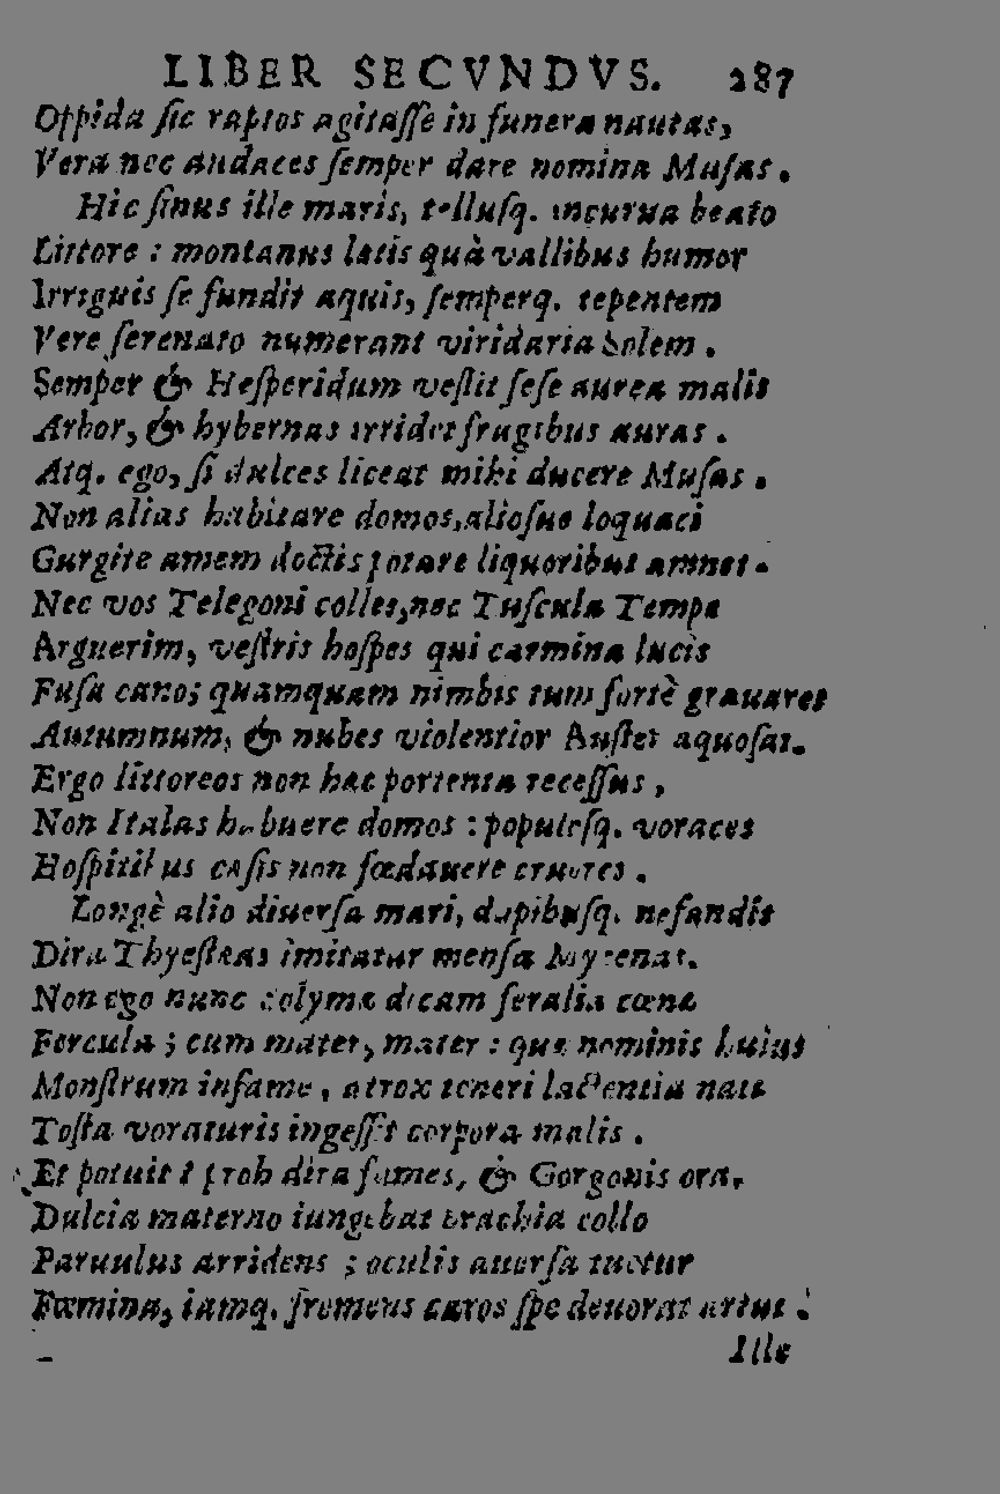 LIBER SECVNDVS. 287
Oppida sic raptos agitasse in funera nautas,
Vera nec audaces semper dare nomina Musas.
Hic sinus ille maris, tellusq. incurua beato
Littore : montanus latis quà vallibus humor
Irriguis se fundit aquis, semperq. tepentem
Vere serenato numerant viridaria Solem.
Semper & Hesperidum vestit sese aurea malis
Arbor, & hybernas irridet frugibus auras.
Atq. ego, si dulces liceat mihi ducere Musas.
Non alias habitare domos, aliosue loquaci
Gurgite amem doctis potare liquoribus amnes.
Nec vos Telegoni colles, nec Tuscula Tempe
Arguerim, vestris hospes qui carmina lucis
Fusa cano; quamquam nimbis tum fortè grauaret
Autumnum, & nubes violentior Auster aquosas.
Ergo littoreos non hac portenta recessus,
Non Italas habuere domos : populosq. voraces
Hospitibus cæsis non fœdauere cruores.
Longè alio diuersa mari, dapibusq. nefandis
Dira Thyestæas imitatur mensa Mycenas.
Non ego nunc Solymæ dicam feralia cœnæ
Fercula ; cum mater, mater : quæ nominis huius
Monstrum infame, atrox teneri lactentia nati
Tosta voraturis ingessit corpora malis.
Et potuit ? proh dira fames, & Gorgonis ora,
Dulcia materno iungebat brachia collo
Paruulus arridens ; oculis auersa tuetur
Fœmina, iamq. fremens caros spe deuorat artus.
Ille